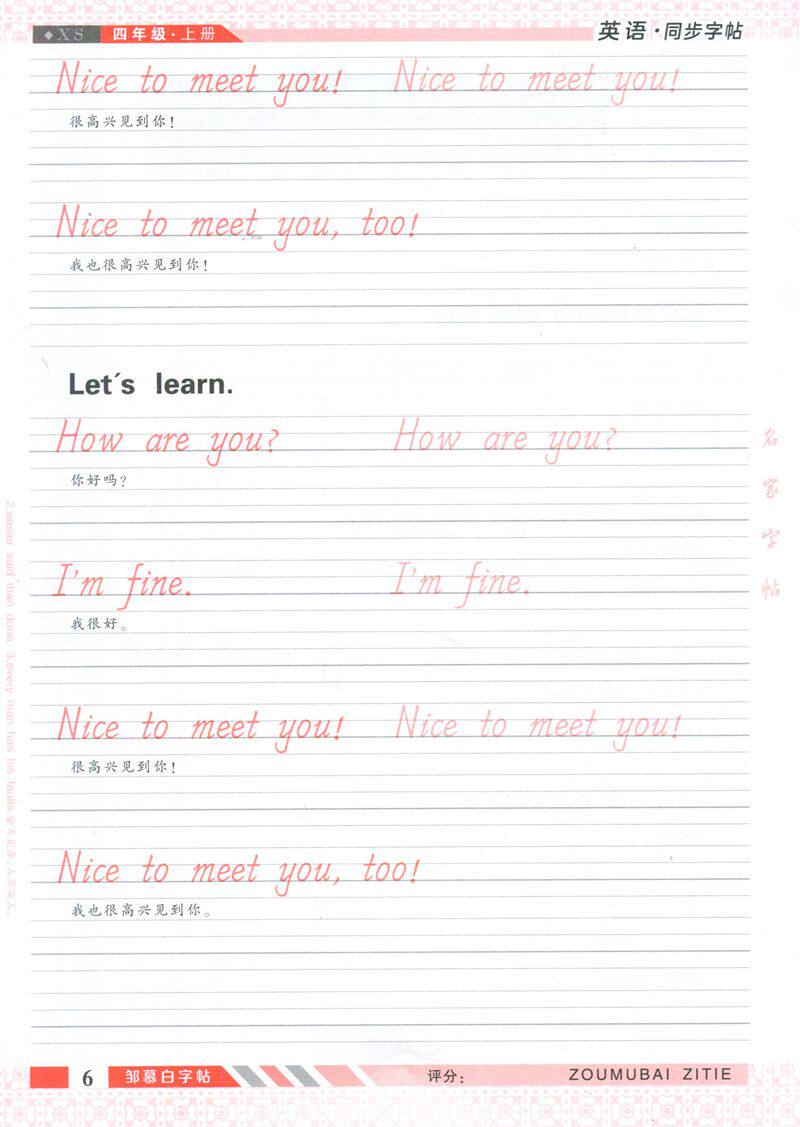 ◆XS 四年级·上册 英语·同步字帖
Nice to meet you! Nice to meet you!
很高兴见到你!
Nice to meet you, too!
我也很高兴见到你!
Let´s learn.
How are you? How are you?
你好吗?
I'm fine. I'm fine.
我很好。
Nice to meet you! Nice to meet you!
很高兴见到你!
Nice to meet you, too!
我也很高兴见到你。
名家字帖
2.easier said than done. 3.every man has his faults.金无足赤,人无完人。
6 邹慕白字帖 评分: ZOUMUBAI ZITIE